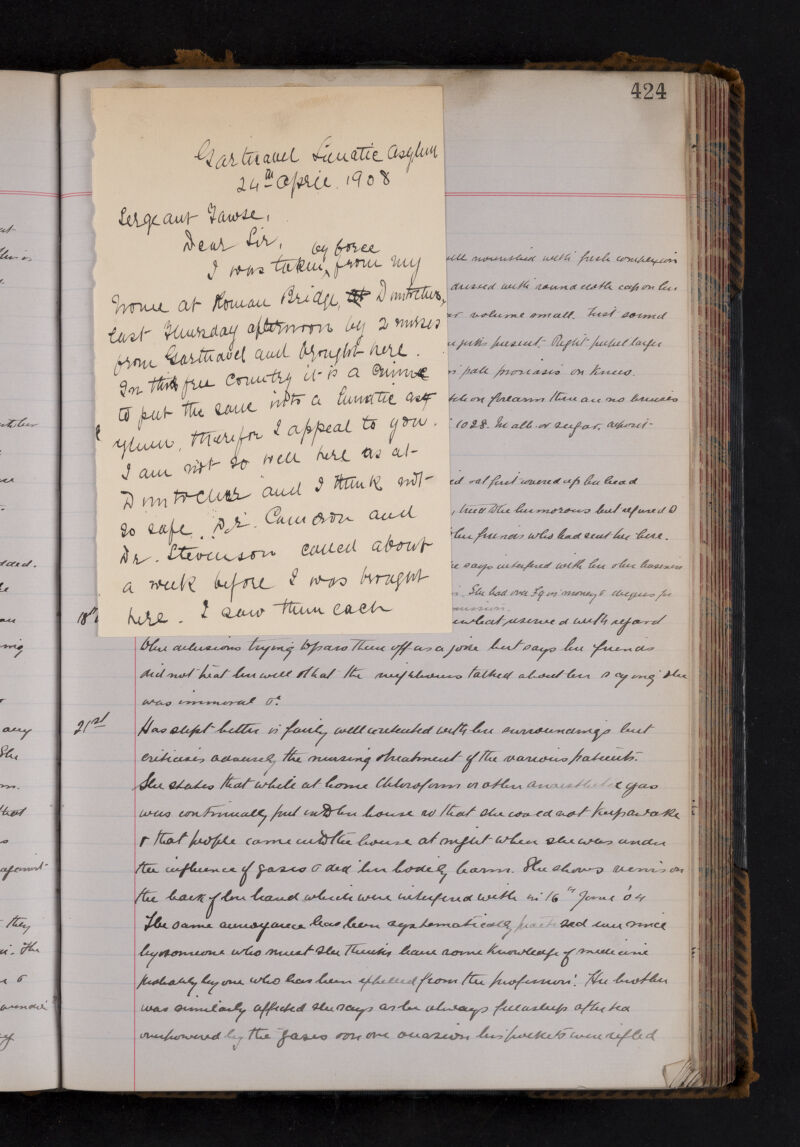 424
Gartnavel Lunatic Asylum
24th April 1908
Sergeant Fawse,
Dear Sir,
by force
I was taken from my
home at Roman Bridge, Duntocher,
last Thursday afternoon by 2 nurses
from Gartnavel and brought here.
In this free country it is a crime
to put the sane into a lunatic as
ylum, therefor I appeal to you.
I am not so well here as at
Duntocher and I think not
so safe. Dr. Cameron and
Dr. Stevenson called about
a week before I was brought
here. I saw them each
well nourished with fresh complexion
dressed with round cloth cap on her
volume small. Heart sound
jerks present. Right pupil larger
pale psoriasis on knees.
on forearm there are no bruises
1028. No alb. or sugar. deposit
at first covered up her head
humorous but refused to
her friends who had sent her here.
says interfered with her & her business
She had over £901 money &
18th
somewhat reserved with regard
to her delusions trying to pass them off as a joke but says her friends
did not treat her well & that the neighbours talked about her saying she
was immoral &c
21st
Has slept better is fairly well contented with her surroundings but
criticises adversely the nursing & treatment of the various patients.
She states that while at home Chloroform or other anaesthetic gas
was continually put into her house so that she could not keep awake
& that people came into the house at night when she was under
the influence of gases & did her bodily harm. She shows veins on
the back of her hand which were interfered with in 16th June '04
The same annoyance has been systematically practised ever since
by someone who must she thinks have some knowledge of medicine
probably by one who has been expelled from the profession. Her brother
was similarly affected she says as he always fell asleep after tea
overpowered by the gases & on one occasion his pockets were rifled